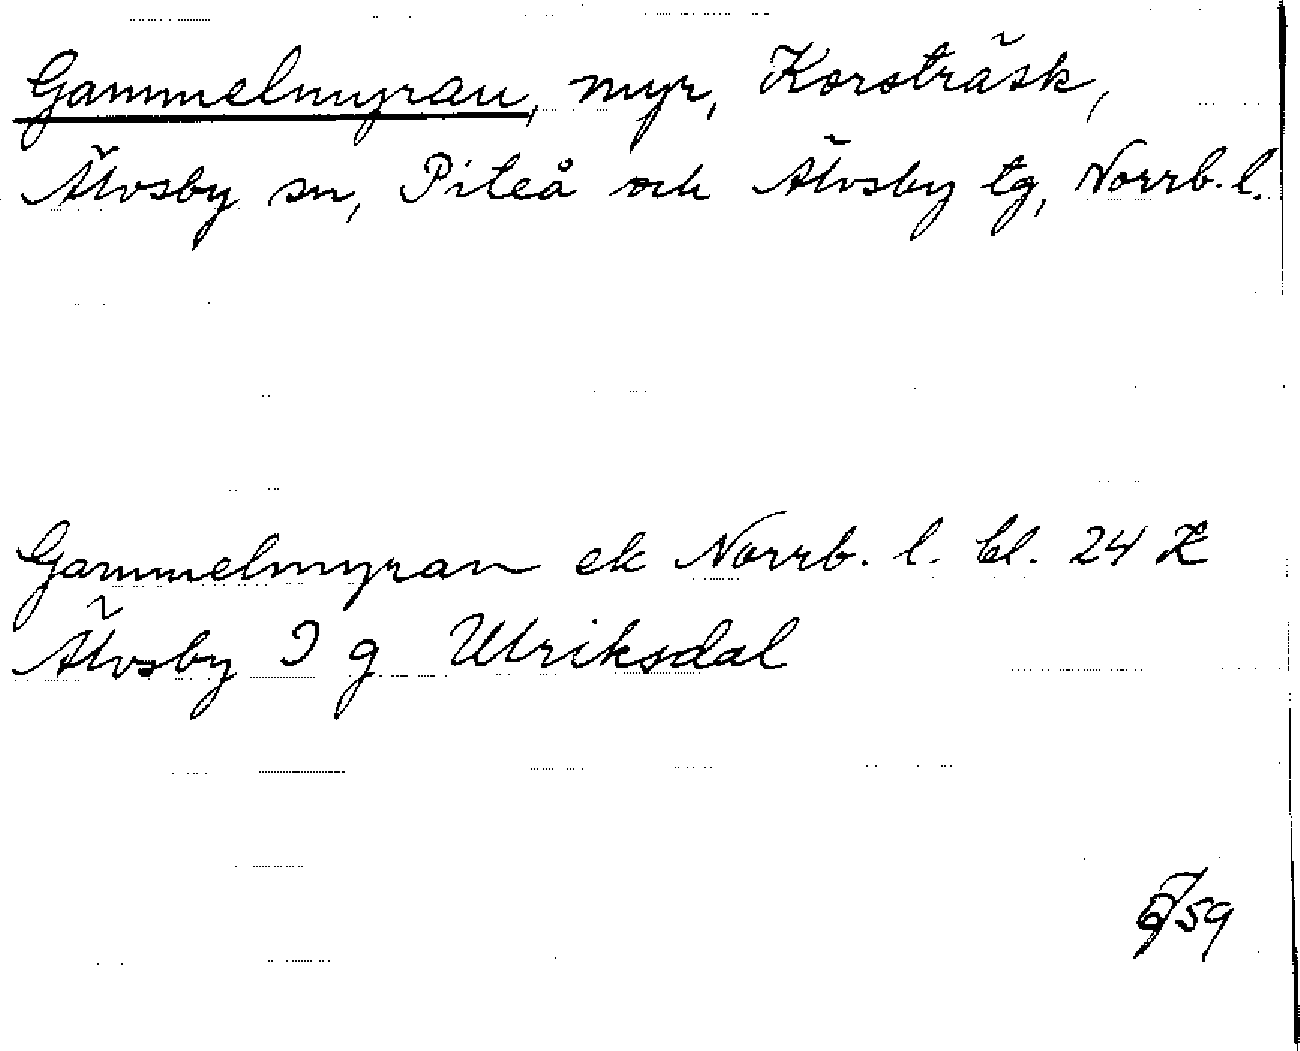 Gammelmyran, myr, Korsträsk,
Älvsby sn, Piteå och Älvsby tg, Norrb. l.
Gammelmyran ek Norrb. l. bl. 24
Älvsby I g Ulriksdal
59